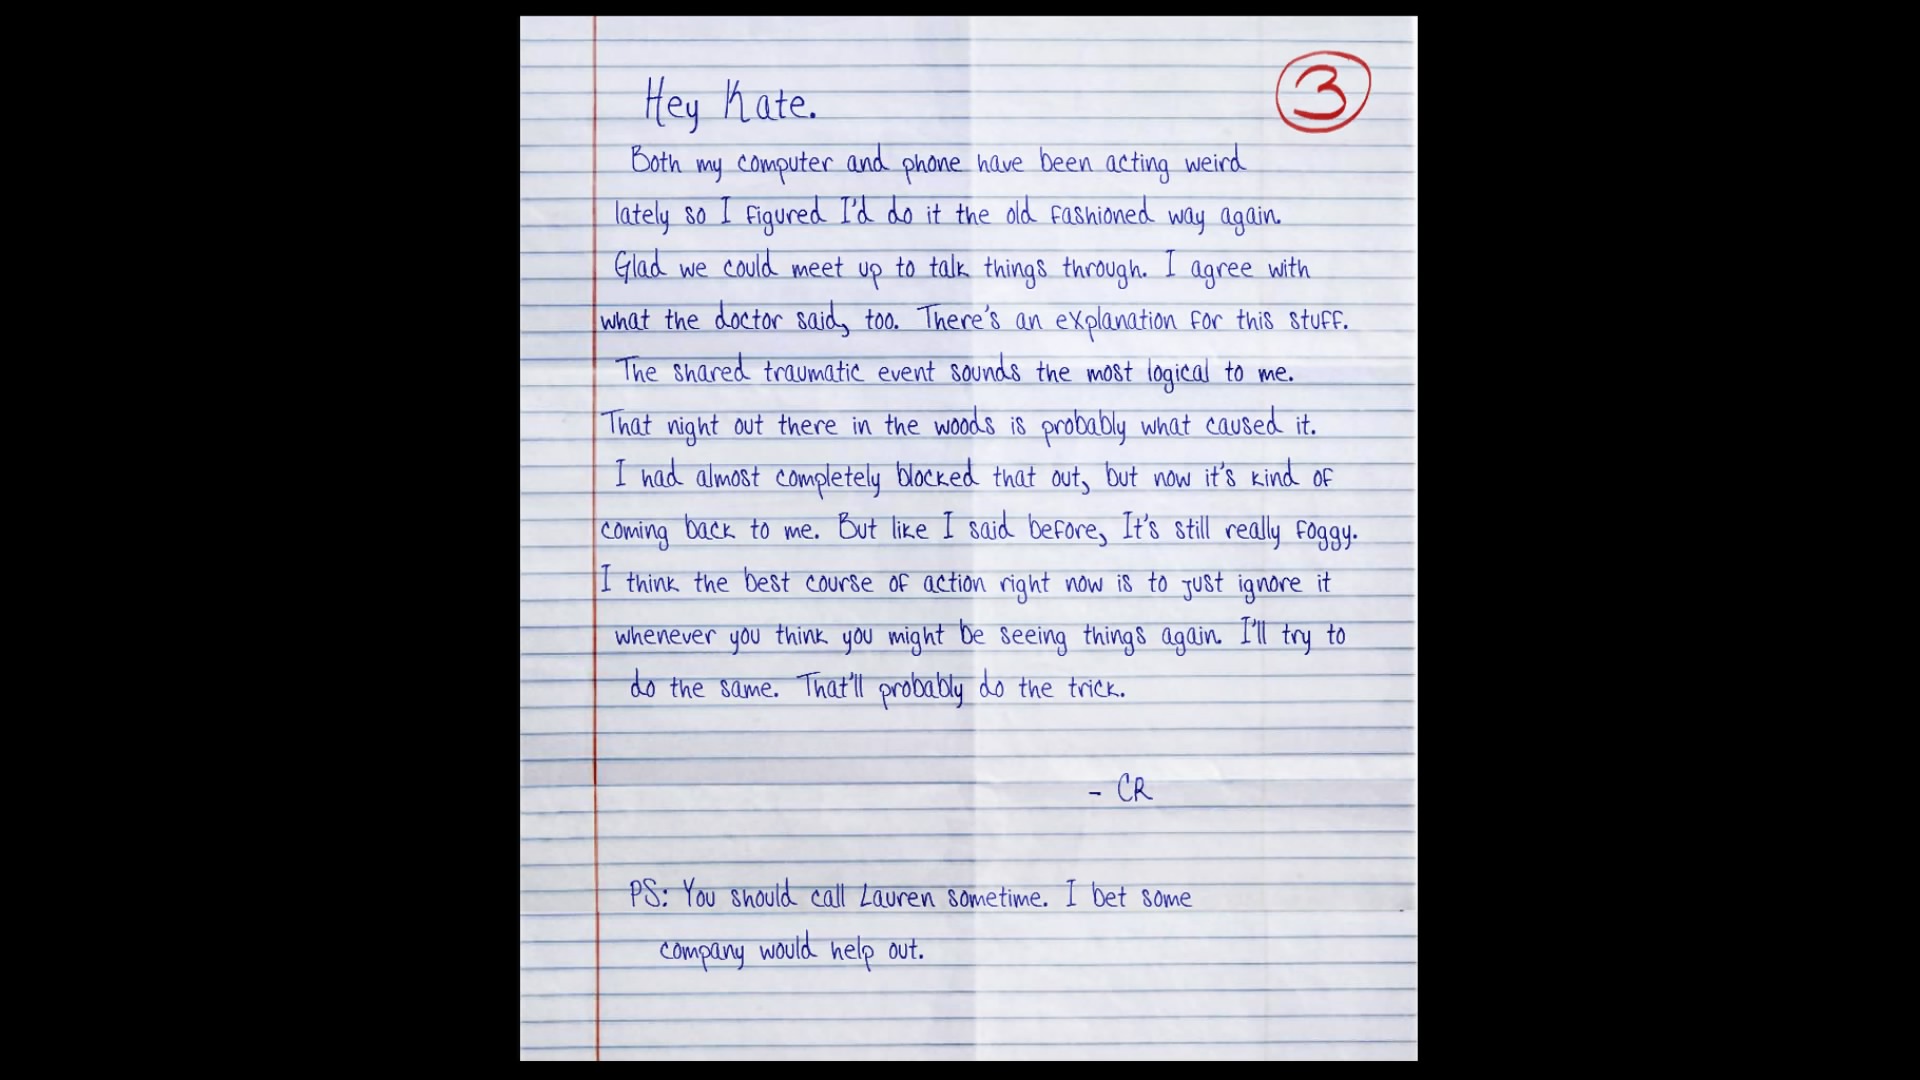 3
Hey Kate.
Both my computer and phone have been acting weird
lately so I figured I'd do it the old fashioned way again.
Glad we could meet up to talk things through. I agree with
what the doctor said, too. There's an explanation for this stuff.
The shared traumatic event sounds the most logical to me.
That night out there in the woods is probably what caused it.
I had almost completely blocked that out, but now it's kind of
coming back to me. But like I said before, It's still really foggy.
I think the best course of action right now is to just ignore it
whenever you think you might be seeing things again. I'll try to
do the same. That'll probably do the trick.
- CR
PS: You should call Lauren sometime. I bet some
company would help out.